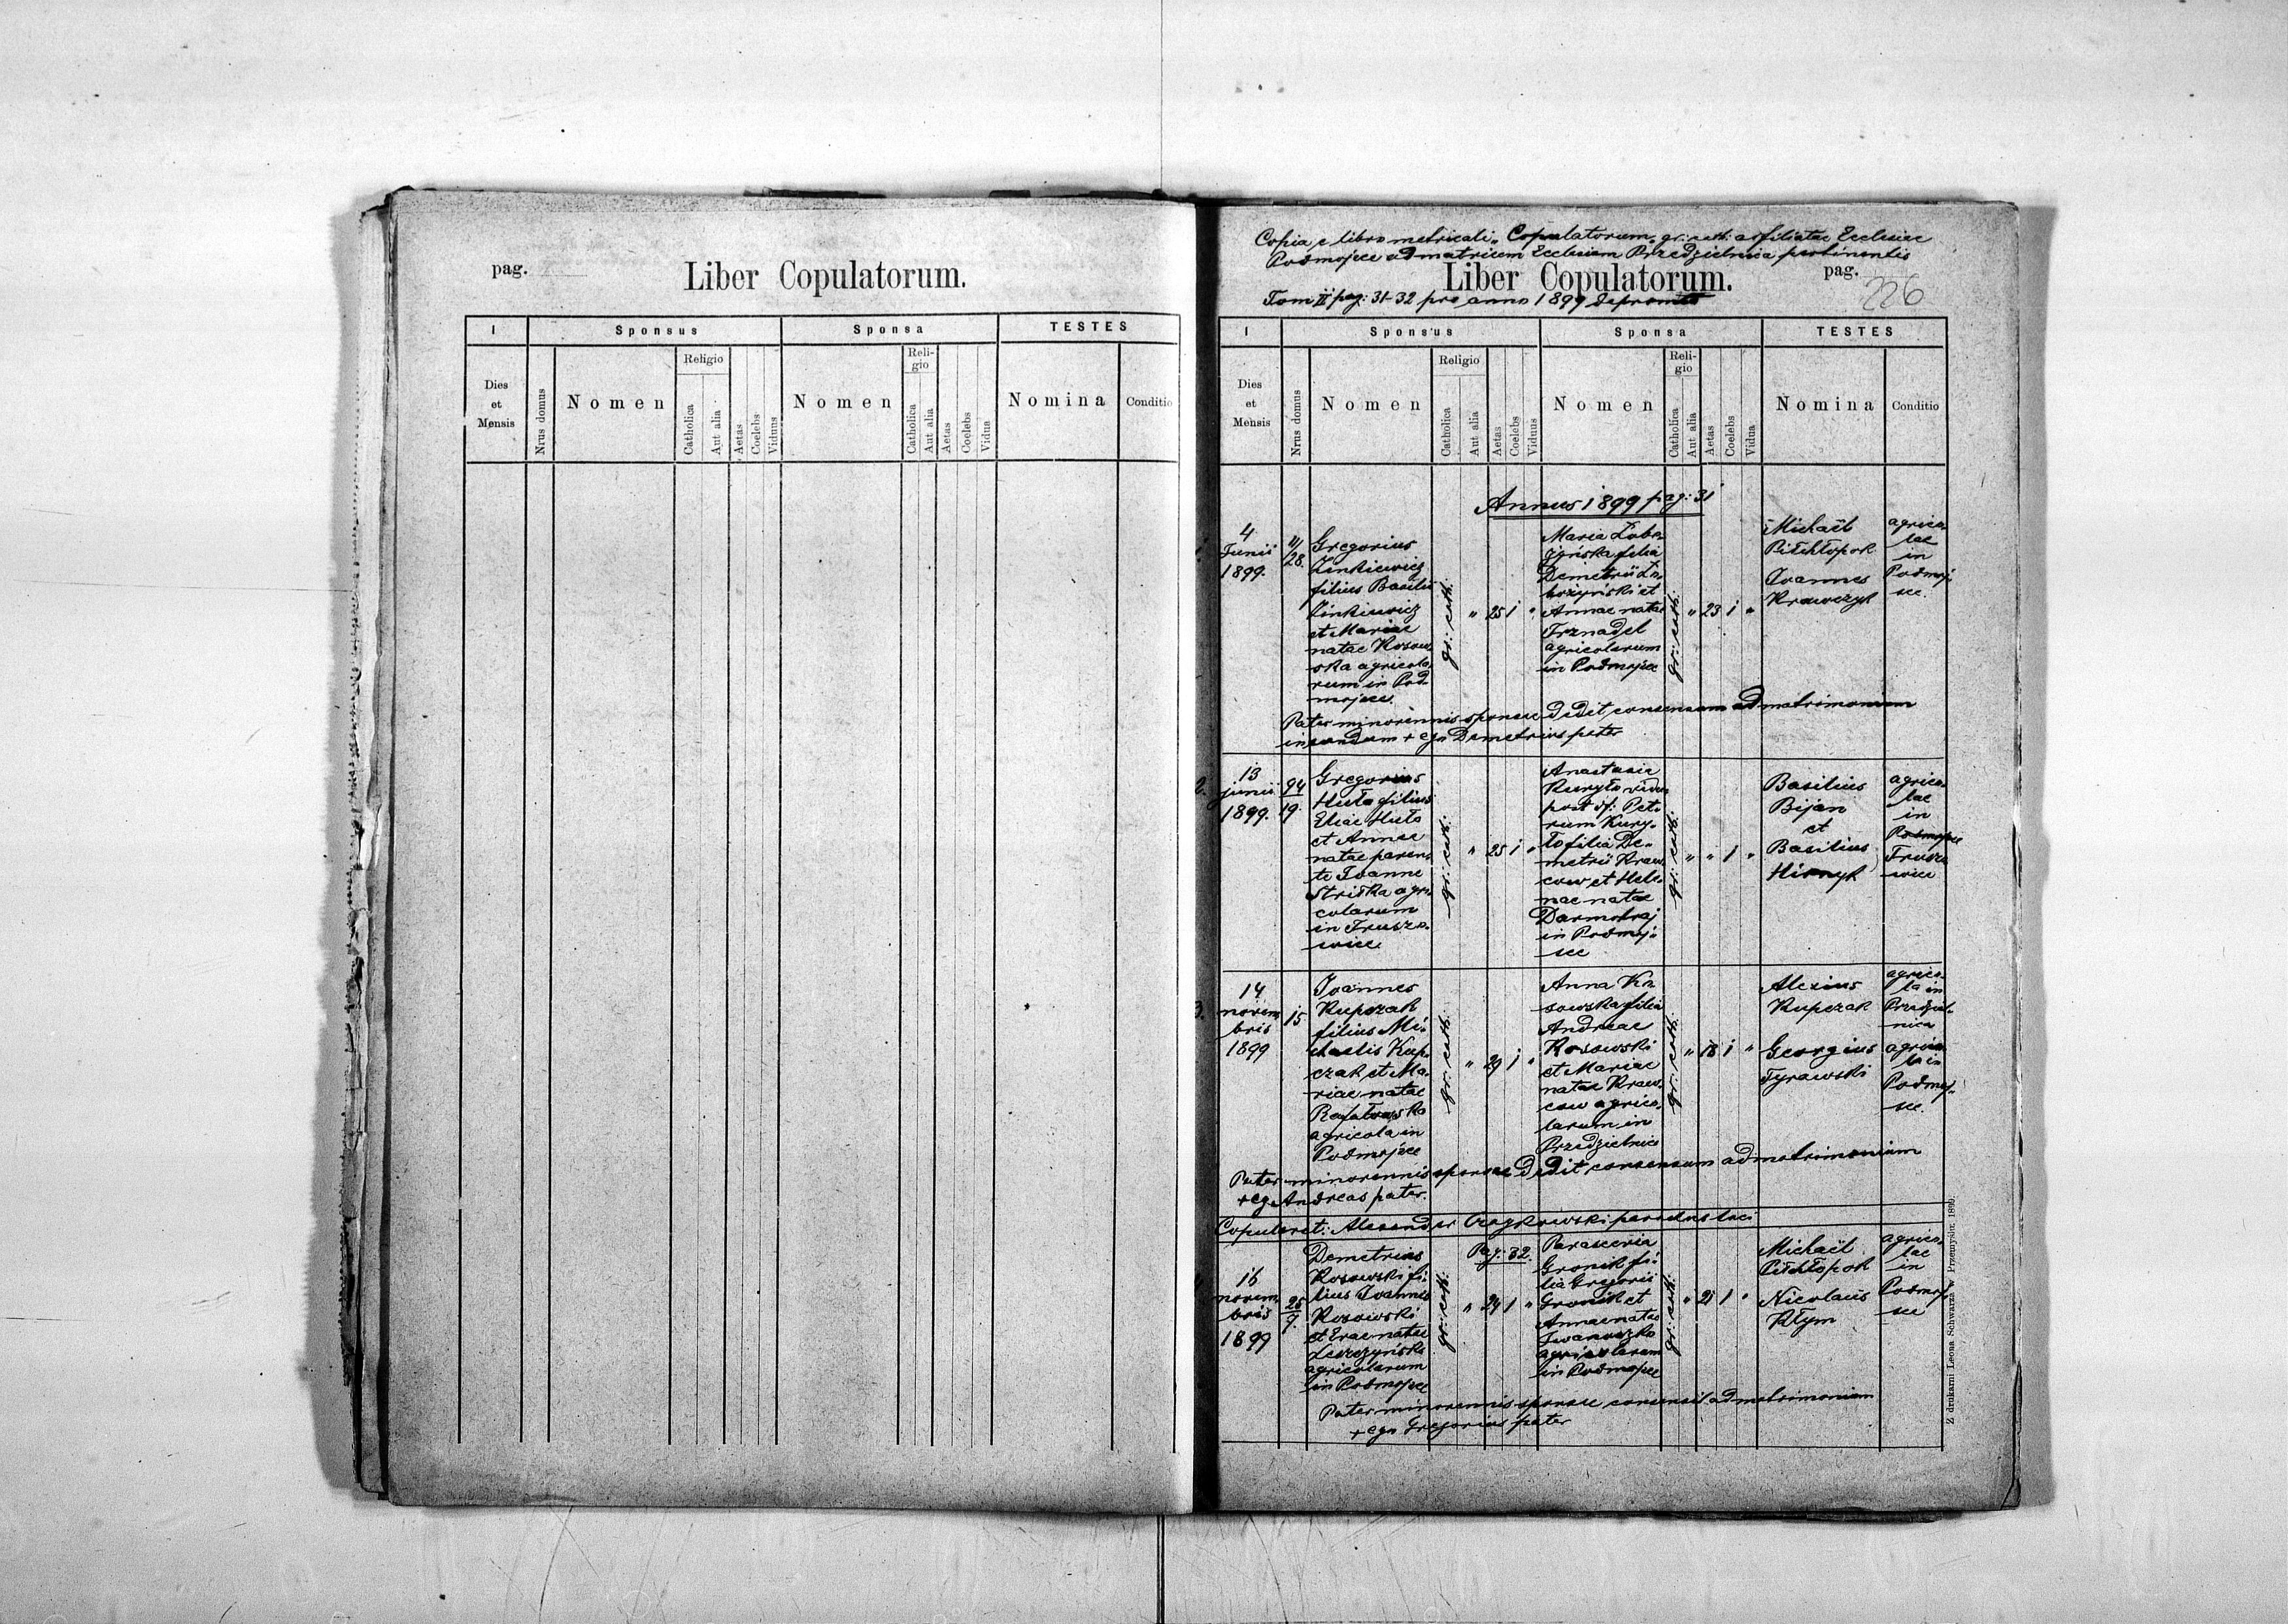 pag.
Liber Copulatorum.
I
Sponsus
Sponsa
TESTES
Dies
et
Mensis
Nrus domus
Nomen
Religio
Catholica
Aut alia
Aetas
Coelebs
Viduus
Nomen
Reli-
gio
Catholica
Aut alia
Aetas
Coelebs
Vidua
Nomina
Conditio
Copia e libro metricali „Copulatorum„ gr: cath: Ecclesiae
Podmojsce ad matricem Ecclesiam Przedzielnica pertinentis
Liber Copulatorum.
pag.
226
Tom II pag: 31-32 pro anno 1899 depromta
I
Sponsus
Sponsa
TESTES
Dies
et
Mensis
Nrus domus
Nomen
Religio
Catholica
Aut alia
Aetas
Coelebs
Viduus
Nomen
Reli-
gio
Catholica
Aut alia
Aetas
Coelebs
Vidua
Nomina
Conditio
Annus 1899 pag: 31
4
Junii
1899.
11/
28.
Gregorius
Zinkiewicz
filius Basilii
Zinkiewicz
et Mariae
natae Kosow-
ska agricola-
rum in Pod-
mojsce.
gr: cath:
" 25 1 "
Maria
filia
Demetrii
et
Annae natae
Trznadel
agricolarum
in Podmojsce
gr: cath:
" 23 1 "
Michaël
Pitchłopok
Joannes
Krawczyk
agrico-
lae
in
Podmoj-
sce.
Pater minorennis sponsae dedit consensum ad matrimonium
ineundum + ego Demetrius pater
2.
13
junii
1899.
94
19.
Gregorius
Huta filius
Eliae Huta
et Annae
natae paren-
te Joanne
agri-
colarum
in Trusze-
wice.
gr: cath:
" 25 1 "
Anastasia
Kuryło vidua
post df: Pet-
rum Kury-
ło filia De-
metrii Kraw-
cow et Hele-
nae natae
Darmohraj
in Podmoj-
sce
gr: cath:
" " 1 "
Basilius
Bijan
et
Basilius
Hirnyk
agrico-
lae
in
Podmojsce
Trusze-
wice
3.
14
novem-
bris
1899
15
Joannes
Kupczak
filius Mi-
chaelis Kup-
czak et Ma-
riae natae
Rafałowska
agricola in
Podmojsce
gr: cath:
" 29 1 "
Anna Ko-
sowska filia
Andreae
Kosowski
et Mariae
natae Kraw-
cow agrico-
larum in
Przedzielnica
gr: cath:
" 18 1 "
Alexius
Kupczak
Georgius
Tyrawski
agrico-
la in
Przedziel-
nica
agrico-
la in
Podmoj-
sce.
Pater minorennis sponsae dedit consensum ad matrimonium
+ ego Andreas pater.
Copulavit: Alexander parochus loci
Pag: 32.
16
novem-
bris
1899
28
9.
Demetrius
Kosowski fi-
lius Joannis
Kosowski
et Evae natae
Leszczyńska
agricolarum
in Podmojsce
gr: cath:
" 24 1 "
Parascevia
Gronik fi-
lia Gregorii
Gronik et
Annae natae
Iwanuszko
agricolarum
in Podmojsce
gr: cath:
" 21 1 "
Michaël
Pitchłopok
Nicolaus
Kłym
agrico-
lae
in
Podmoj-
sce
Pater minorennis sponsae consensit ad matrimonium
+ ego Gregorius pater
Z drukarni Leona Schwarza w Przemyślu: 1899.